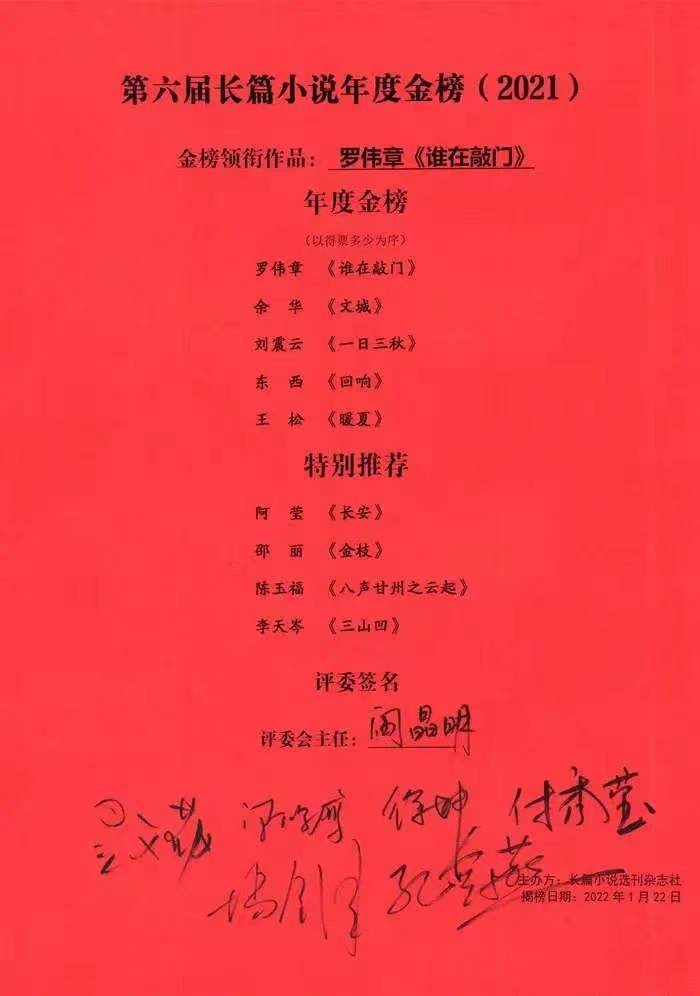 第六届长篇小说年度金榜（2021）
金榜领衔作品：罗伟章《谁在敲门》
年度金榜
（以得票多少为序）
罗伟章 《谁在敲门》
余 华 《文城》
刘震云 《一日三秋》
东 西 《回响》
王 松 《暖夏》
特别推荐
阿 莹 《长安》
邵 丽 《金枝》
陈玉福 《八声甘州之云起》
李天岑 《三山凹》
评委签名
评委会主任：阎晶明
徐坤 付秀莹
主办方：长篇小说选刊杂志社
揭榜日期：2022 年 1 月 22 日